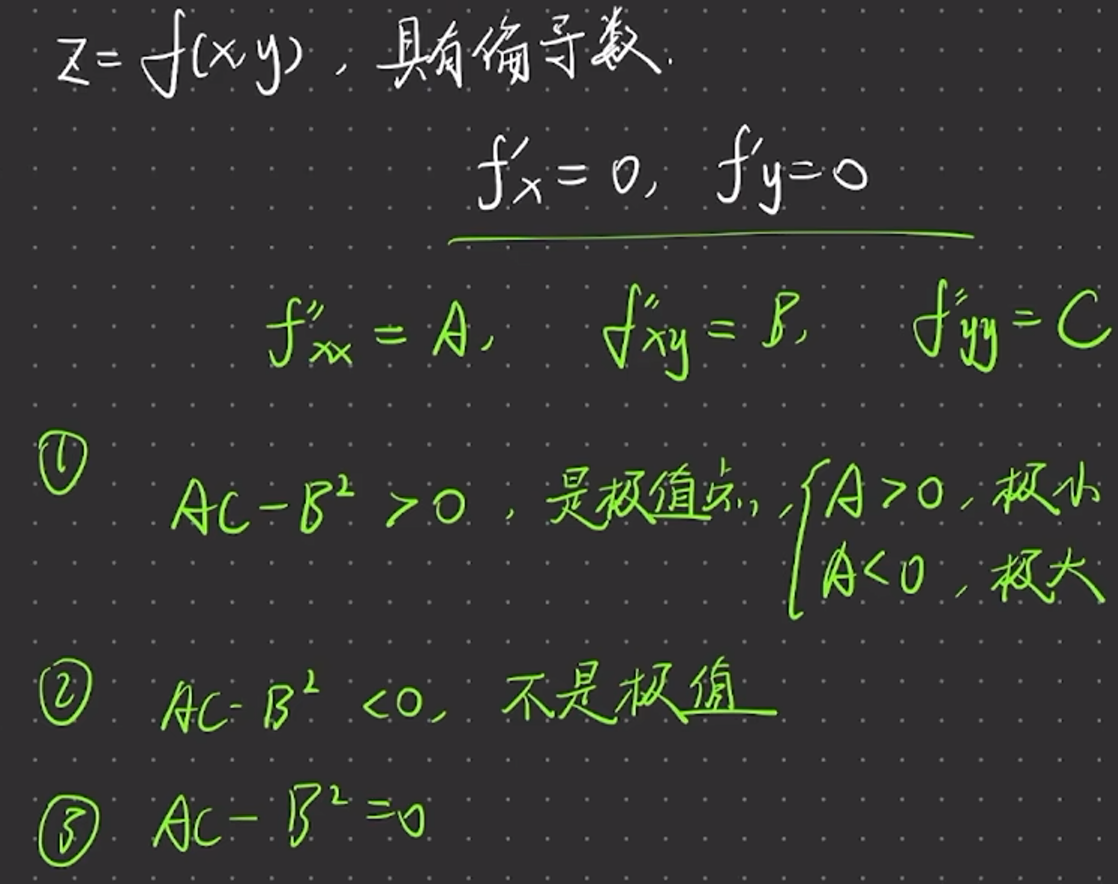 z=f(x,y)，具有偏导数.
f'x=0, f'y=0
f''xx=A, f''xy=B, f''yy=C
① AC-B²>0，是极值点, { A>0，极小
A<0，极大
② AC-B²<0，不是极值
③ AC-B²=0